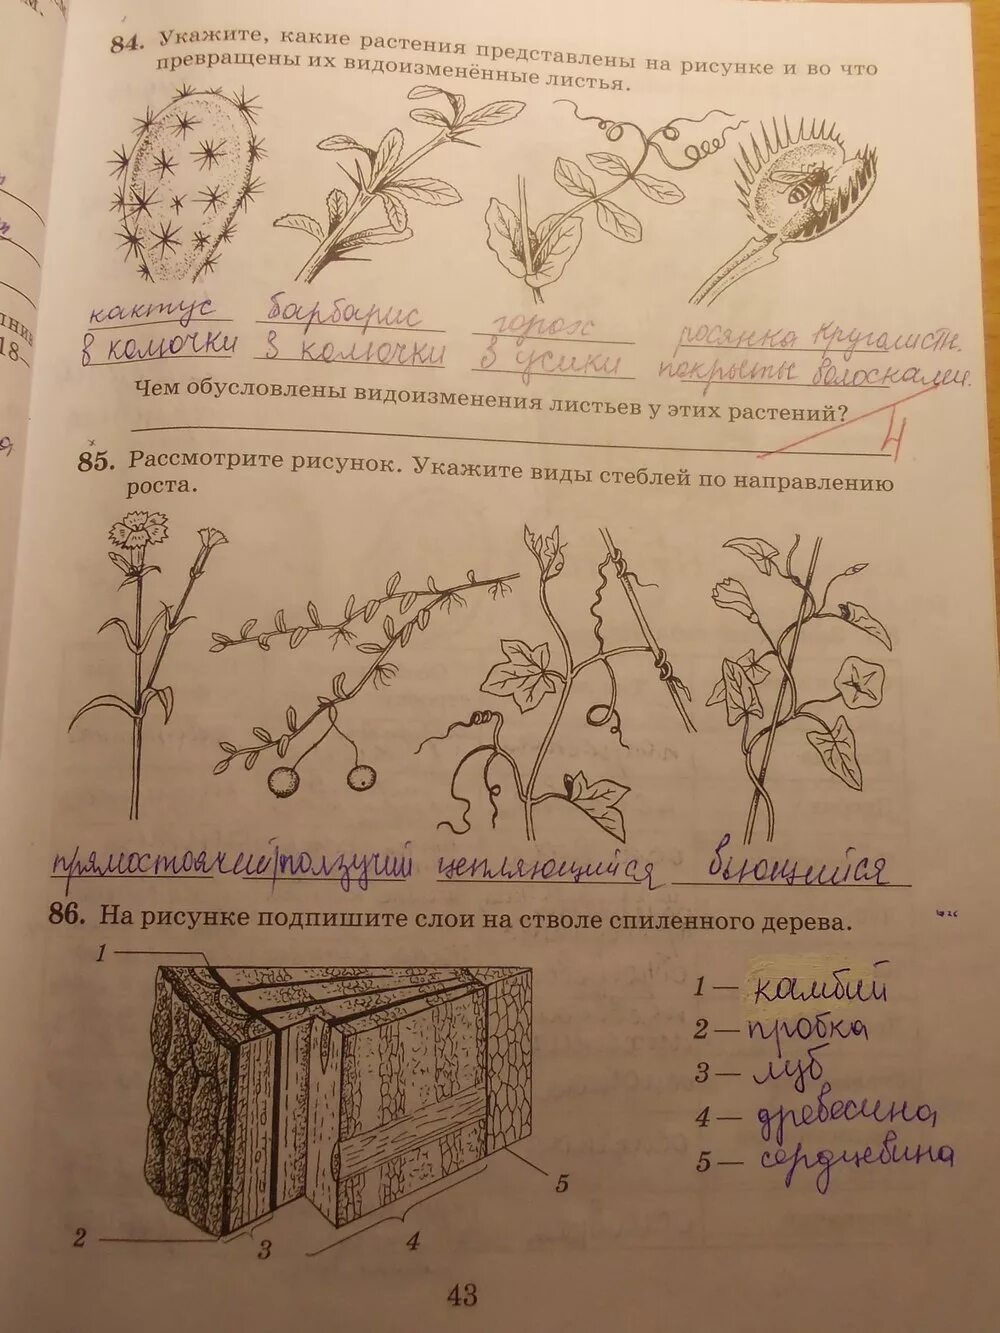 84. Укажите, какие растения представлены на рисунке и во что
превращены их видоизменённые листья.
кактус барбарис горох росянка круголистн.
в колючки в колючки в усики покрыты волосками.
Чем обусловлены видоизменения листьев у этих растений?
4
85. Рассмотрите рисунок. Укажите виды стеблей по направлению
роста.
прямостоячий ползучий цепляющийся вьющийся
86. На рисунке подпишите слои на стволе спиленного дерева.
1
1 — камбий
2 — пробка
3 — луб
4 — древесина
5 — сердцевина
5
2
3
4
43